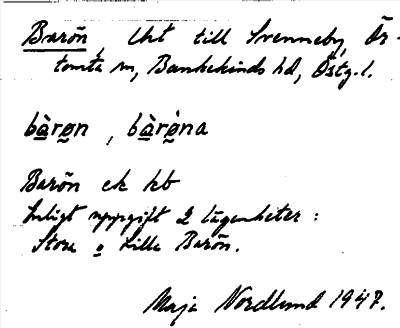 Barön, Uht till Svenneby, Ör-
tomta sn, Bankekinds hd, Östg. l.
bàrøn, bàrø̀na
Barön ek kb
Enligt uppgift 2 lägenheter:
Stora o Lilla Barön.
Maja Nordlund 1947.